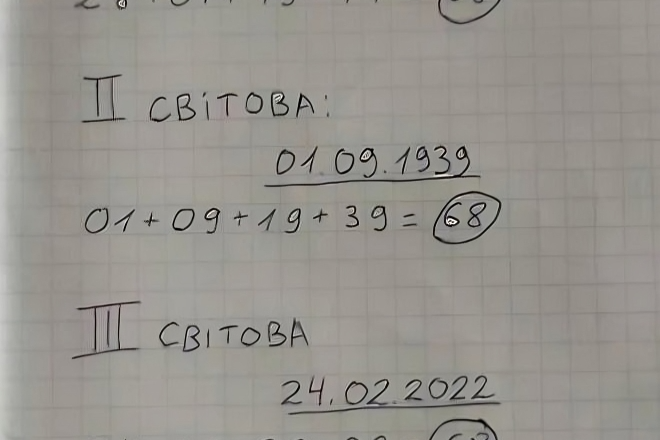 II СВІТОВА:
01.09.1939
01+09+19+39=68
III СВІТОВА
24.02.2022